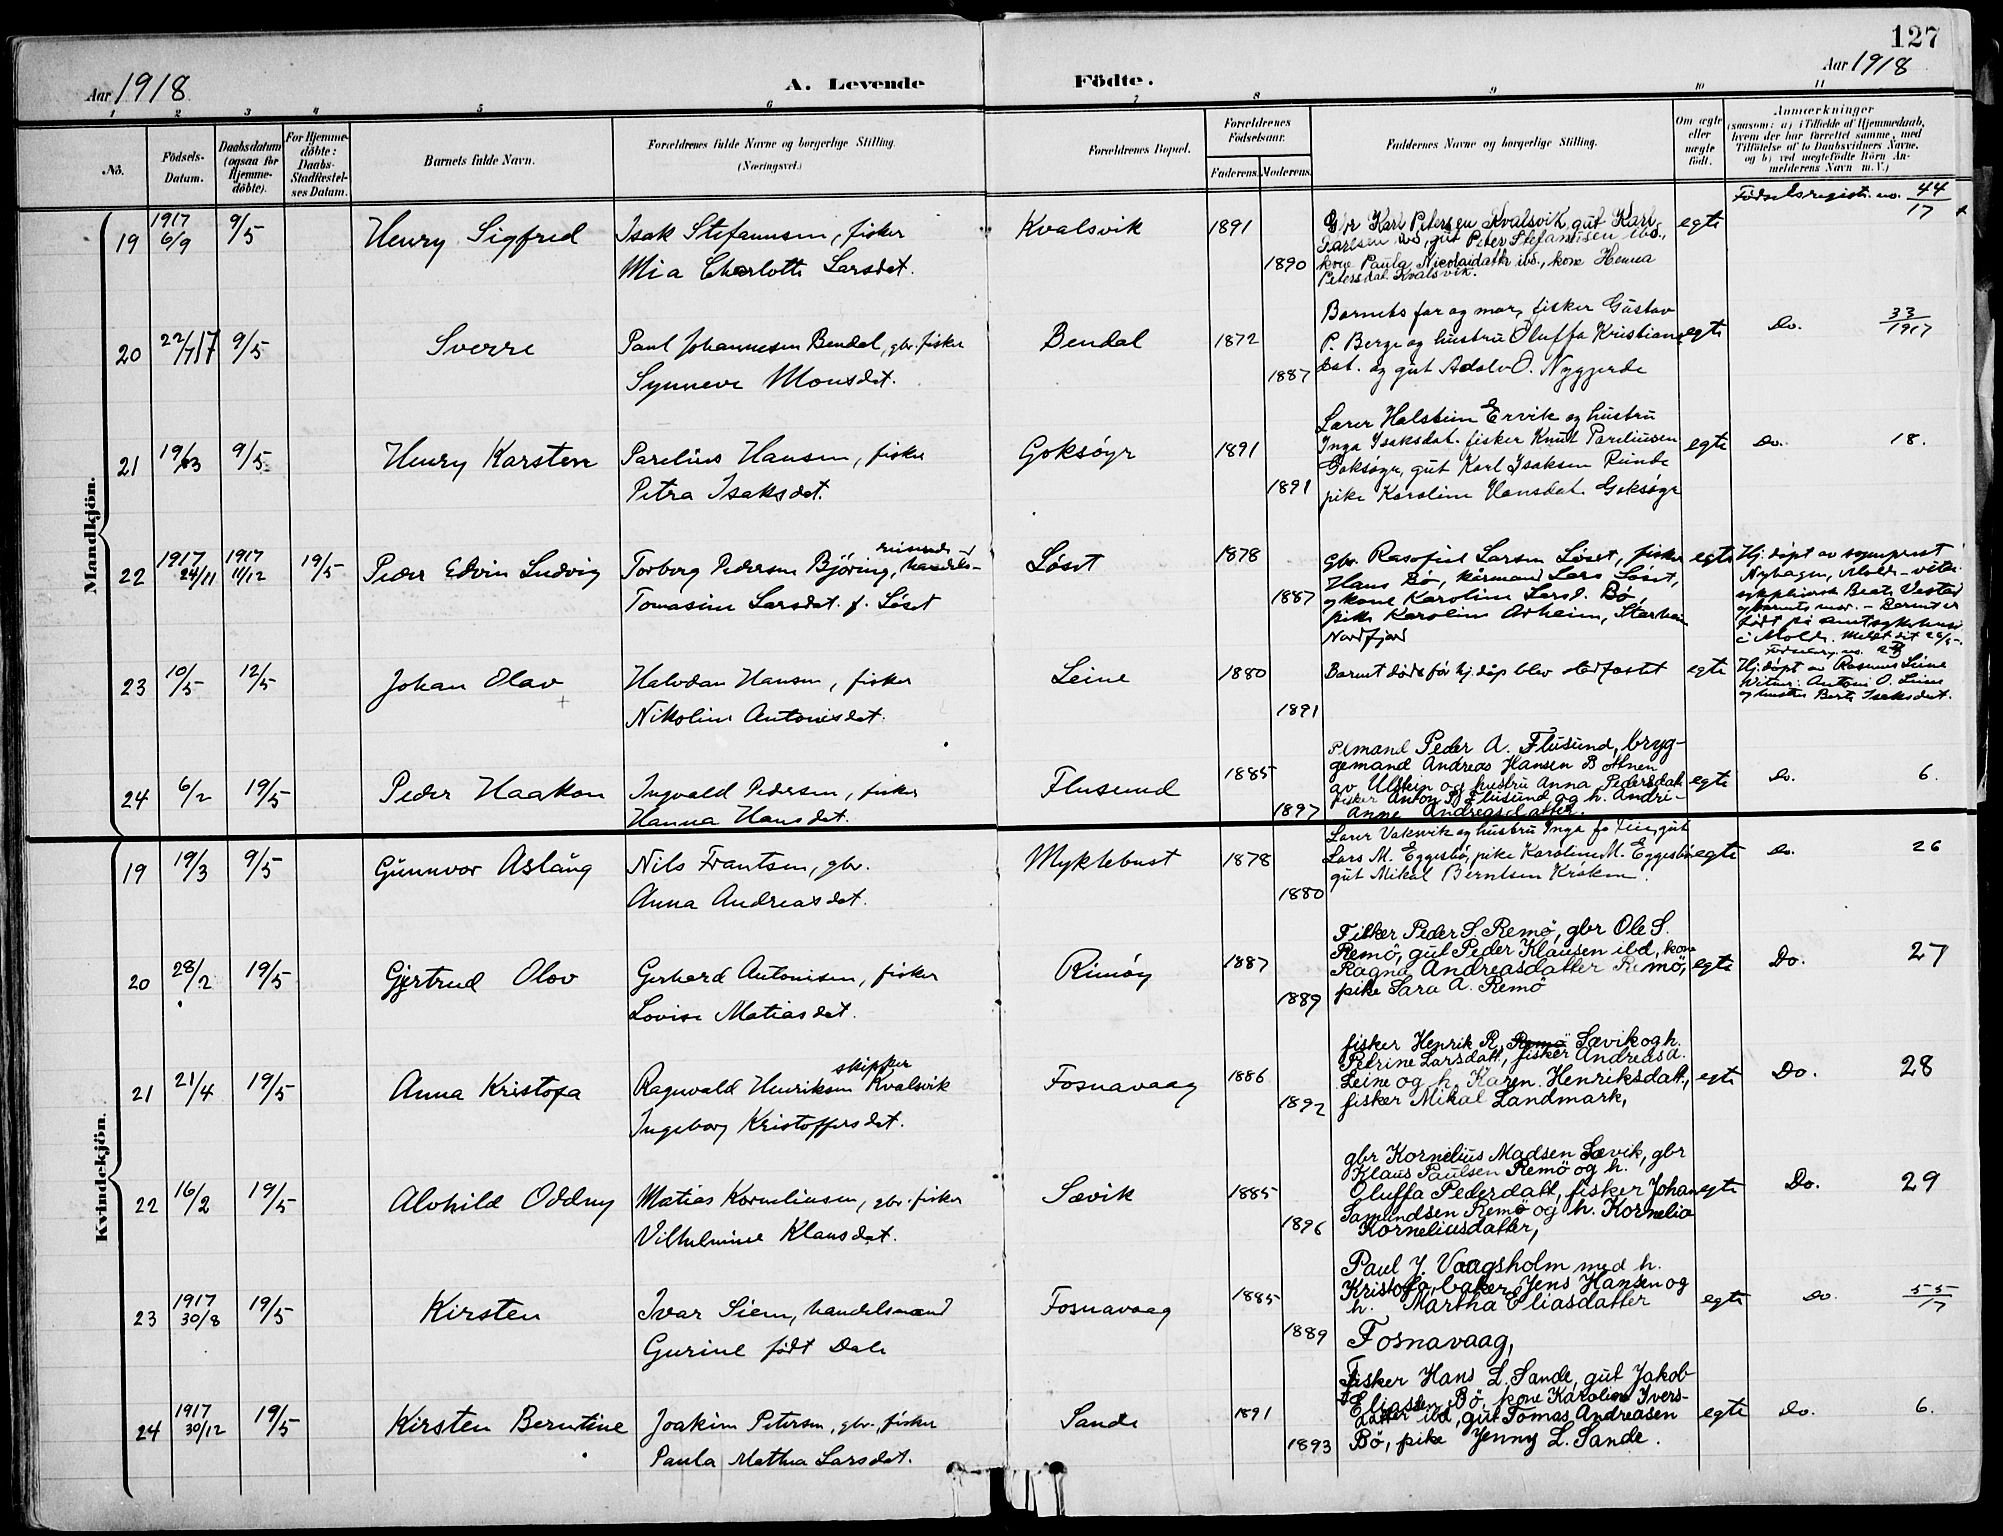 127
Aar 1918
A. Levende Födte.
Aar 1918
1 2 3 4 5 6 7 8 9 10 11
No.
Födsels-Datum.
Daabsdatum (ogsaa for Hjemme-döbte).
For Hjemme-döbte: Daabs-Stadfæstel-ses Datum.
Barnets fulde Navn.
Forældrenes fulde Navne og borgerlige Stilling.
(Næringsvei.)
Forældrenes Bopæl.
Forældrenes Födselsaar.
Faderens. Moderens.
Faddernes Navne og borgerlige Stilling.
Om ægte eller uægte födt.
Anmærkninger
(saasom: a) i Tilfælde af Hjemmedaab, hvem der har forrettet samme, med Tilföielse af to Daabsvidners Navne, og b) ved uegtefödte Börn An-melderens Navn m. V.)
Mandkjön.
19 1917 6/9 9/5 Henry Sigfred
Isak Stefansen, fisker
Mia Charlotte Larsdat.
Kvalsvik 1891 1890
Gbr Karl Petersen Kvalsvik, gut Karl
Karlsen ibd, gut Peter Stefansen ibd.,
kone Paula Nicolaidattr ibd., kone Henna
Petersdat. Kvalsvik.
egte
Födselsregistr. no. 44/17
20 22/7 17 9/5 Sverre
Paul Johannesen Bendal, gbr. fisker
Synneve Monsdat.
Bendal 1872 1887
Barnets far og mor, fisker Gustav
P. Berge og hustru Oluffa Kristians-
dat. og gut Adolv O. Nyggjerde
egte Do. 33/1917
21 19/3 9/5 Henry Karsten
Parelius Hansen, fisker
Petra Isaksdat.
Goksöyr 1891 1891
Lærer Halstein Ervik og hustru
Inga Isaksdat. fisker Knut Pareliusen
Goksöyr, gut Karl Isaksen Runde
pike Karoline Hansdat. Goksöyr
egte Do. 18.
22 1917 24/11 1917 11/12 19/5 Peder Edvin Ludvig
Torberg Pedersen Björing, reisende handels-
Tomasine Larsdat. f. Löset
Löset 1878 1887
Gbr. Rasofiel Larsen Löset, fisker
Hans Bö, kårmand Lars Löset,
og kone Karoline Larsd. Bö,
pike Karoline Arheim, Starheim
Nordfjord
egte
Hj. döpt av sogneprest
Nyhagen, Molde - vitn.
sykepleierske Beate Vestad
og barnets mor. - Barnet er
födt på amtssykehuset
i Molde.
23 10/5 12/5 Johan Olav
Halvdan Hansen, fisker
Nikoline Antonisdat.
Leine 1880 1891
Barnet döde för hj. dåp blev stadfæstet
egte
Hj. döpt av Rasmus Leine
Vitner: Antoni O. Leine
og hustru Berte Isaksdat.
24 6/2 19/5 Peder Haakon
Ingvald Pedersen, fisker
Hanna Hansdat.
Flusund 1885 1897
Peder A. Flusund, bryg-
gemand Andreas Hansen Botnen
av Ulstein og hustru Anna Pedersdatt
fisker Anton P. Flusund og h. Andri-
Anne Andreasdatter.
egte Do. 6.
Kvindekjön.
19 19/3 9/5 Gunnvor Aslaug
Nils Frantsen, gbr.
Anna Andreasdat.
Myklebust 1878 1880
Lærer Vaksvik og hustru Inga, gut
Lars M. Eggesbö, pike Karoline M. Eggesbö
gut Mikal Berntsen Kröken.
egte Do. 26
20 28/2 19/5 Gjertrud Olov
Gerhard Antonisen, fisker
Lovise Matiasdat.
Rimöy 1887 1889
Fisker Peder S. Remö, gbr Ole S.
Remö, gut Peder Klausen ibd, kone
Ragna Andreasdatter Remö,
pike Sara A. Remö
egte Do. 27
21 21/4 19/5 Anna Kristofa
Ragnvald Henriksen Kvalsvik skipper
Ingeborg Kristoffersdat.
Fosnavaag 1886 1892
fisker Henrik R. Remö Sævik og h.
Petrine Larsdatt, fisker Andreas A.
Leine og h. Karen Henriksdatt.,
fisker Mikal Landmark,
egte Do. 28
22 16/2 19/5 Alvhild Oddny
Matias Korneliusen, gbr. fisker
Vilhelmine Klausdat.
Sævik 1885 1896
gbr Kornelius Madsen Sævik, gbr
Klaus Paulsen Remö og h.
Gluffa Pederdatt, fisker Johan
Samundsen Remö og h. Kornelia
Korneliusdatter,
egte Do. 29
23 1917 30/8 19/5 Kirsten
Ivar Siem, handelsmand
Gurine födt Dale
Fosnavaag 1885 1889
Paul J. Vaagsholm med h.
Kristofa, baker Jens Hansen og
h. Martha Eliasdatter
Fosnavaag,
egte Do. 55/17
24 1917 30/12 19/5 Kirsten Berntine
Joakim Petersen, gbr., fisker
Paula Mathea Larsdat.
Sande 1891 1893
Fisker Hans L. Sande, gut Jakob
Eliassen Bö, kone Karoline Ivers-
datter ibd, gut Tomas Andreasen
Bö, pike Jenny L. Sande.
egte Do. 6.